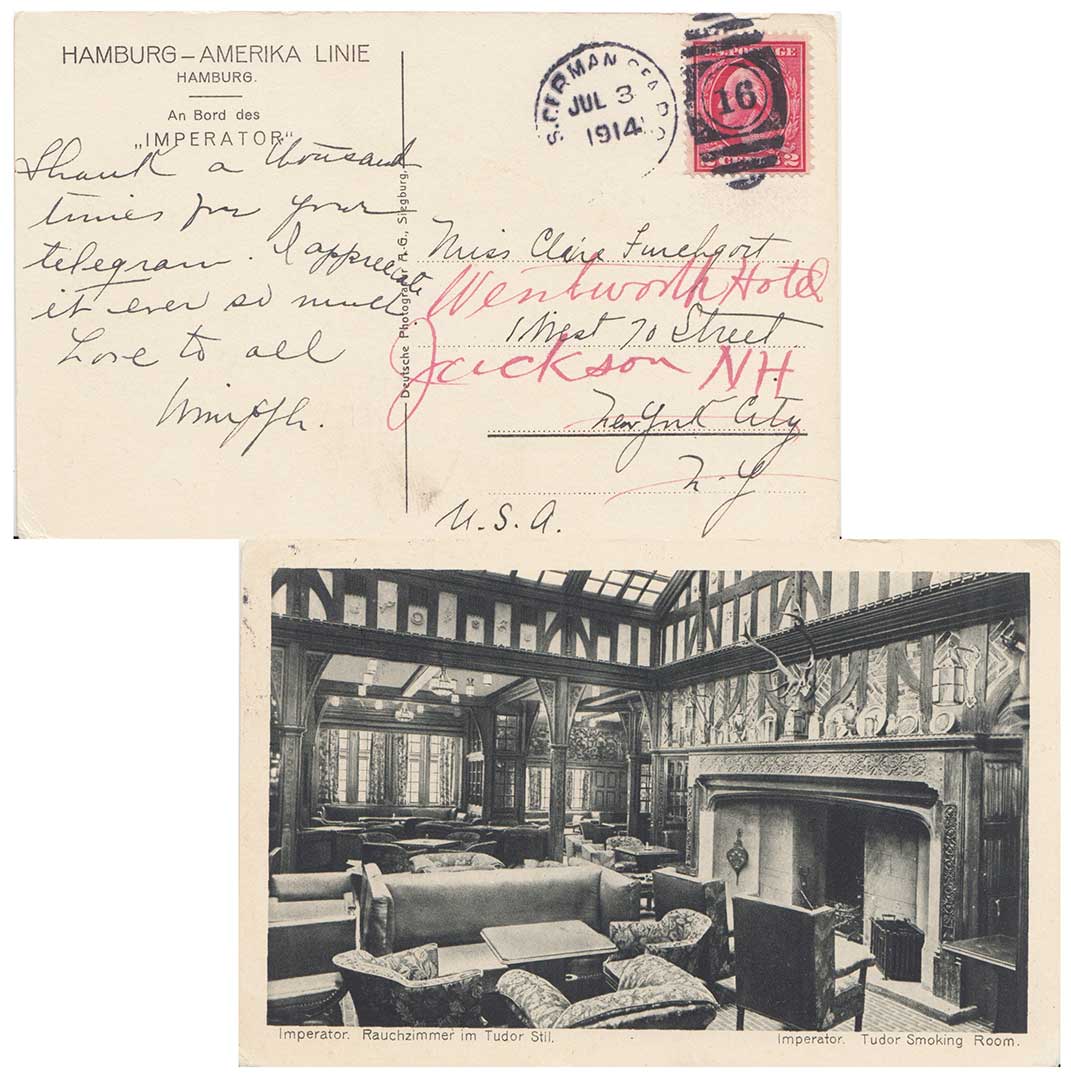 HAMBURG–AMERIKA LINIE
HAMBURG.
An Bord des
„IMPERATOR“
Thank a thousand
times for your
telegram. I appreciate
it ever so much.
Love to all
Deutsche Photogr. A.-G., Siegburg.
JUL 3
1914
U.S. POSTAGE
16
2 CENTS 2
Miss Claire
Wentworth Hotel
1 West 70 Street
Jackson NH
New York City
N. Y
U. S. A.
Imperator. Rauchzimmer im Tudor Stil.
Imperator. Tudor Smoking Room.